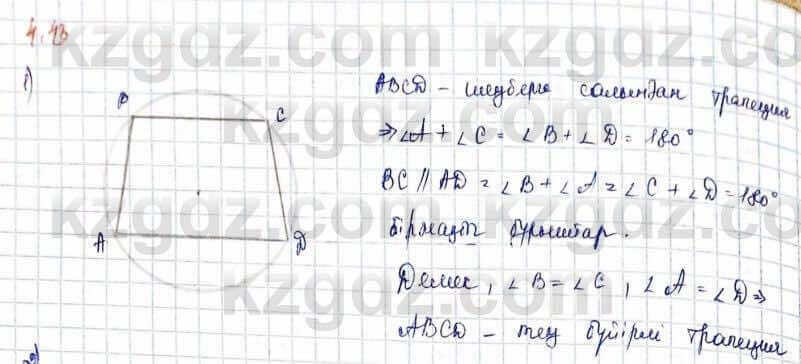 4.43
1)
ABCD – шеңберге салынған трапеция
⇒ ∠A + ∠C = ∠B + ∠D = 180°
BC // AD = ∠B + ∠A = ∠C + ∠D = 180°
бұрыштар.
Демек, ∠B = ∠C, ∠A = ∠D ⇒
ABCD – тең бүйірлі трапеция
B
C
A
D
kzgdz.com kzgdz.com
kzgdz.com kzgdz.com
kzgdz.com kzgdz.com